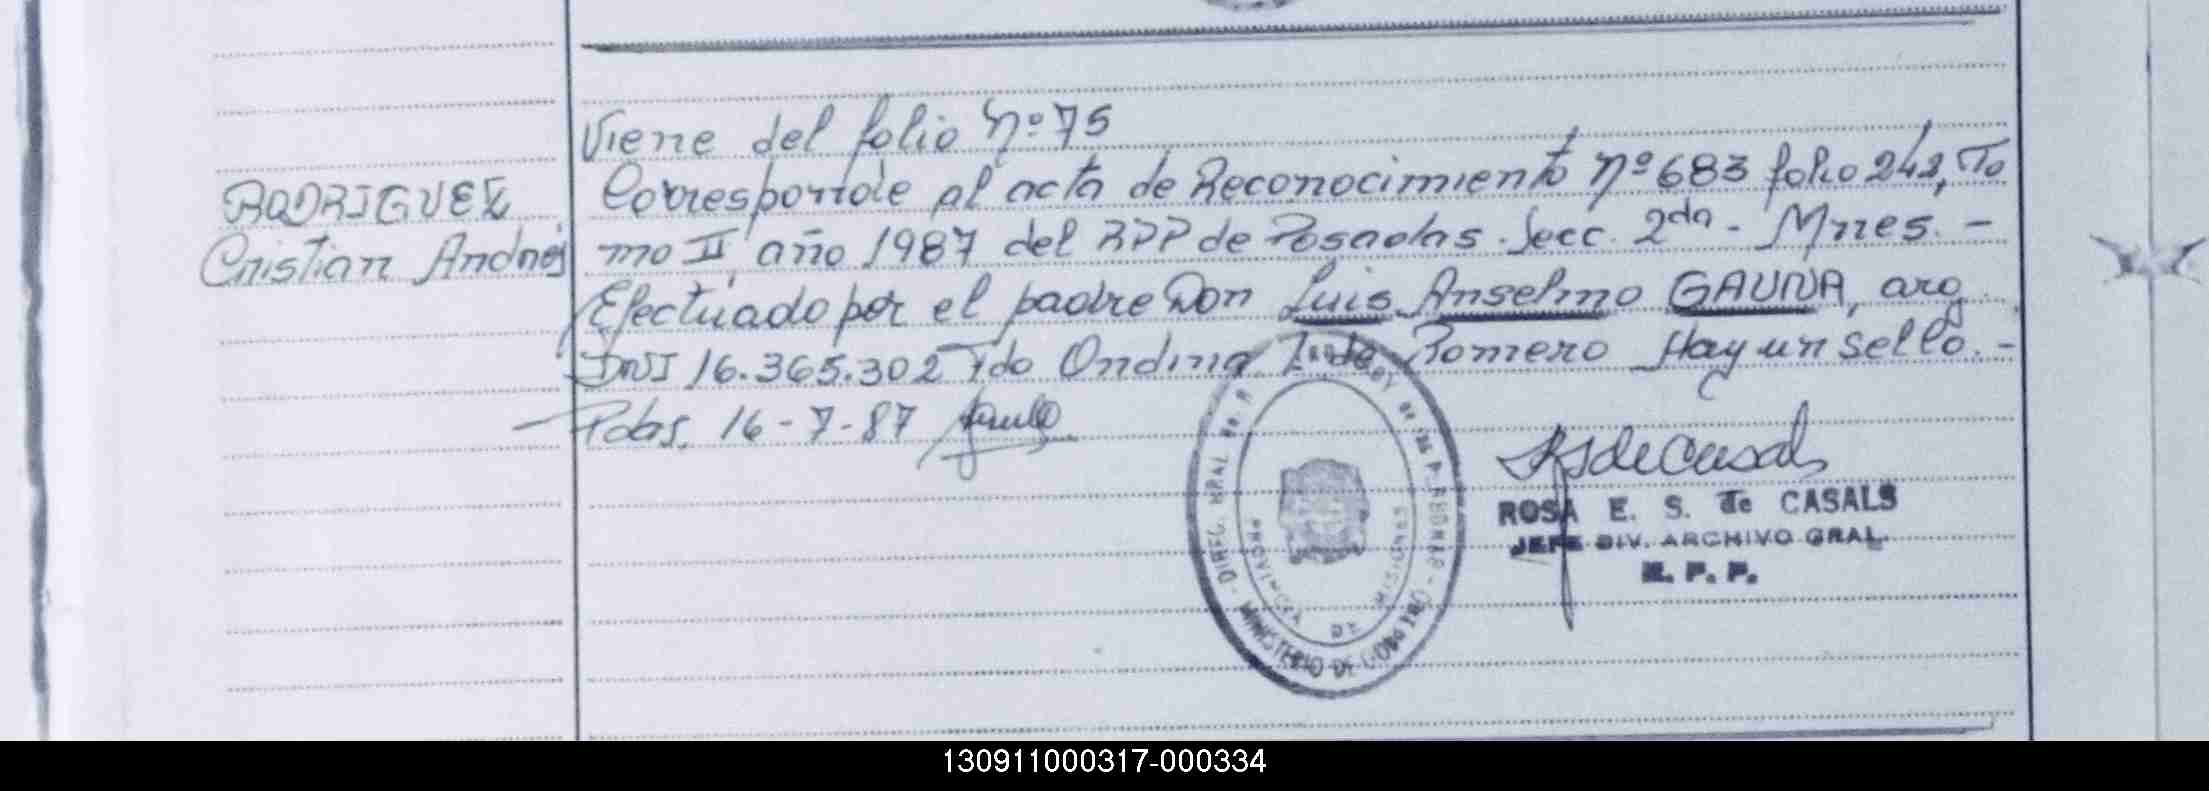 Viene del folio Nº 75
RODRIGUEZ
Corresponde al acta de Reconocimiento Nº 683 folio 242, To
Cristian Andrés
mo II año 1987 del RPP de Posadas. Secc. 2da - Mnes. -
Efectuado por el padre Don Luis Anselmo GAUNA, arg
DNI 16.365.302 Fdo Ondina de Romero Hay un sello. -
Pdas, 16-7-87
ROSA E. S. de CASALS
JEFE DIV. ARCHIVO GRAL.
R. P. P.
PROVINCIA DE MISIONES
MINISTERIO DE GOBIERNO - DIREC. GRAL. DE LAS PERSONAS
130911000317-000334